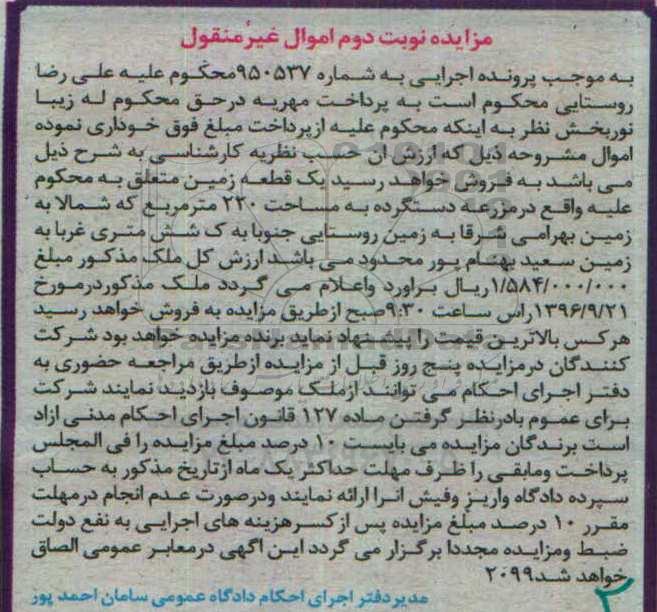 مزایده نوبت دوم اموال غیرمنقول
به موجب پرونده اجرایی به شماره ۹۵۰۵۳۷محکوم علیه علی رضا
روستایی محکوم است به پرداخت مهریه درحق محکوم له زیبا
نوربخش نظر به اینکه محکوم علیه ازپرداخت مبلغ فوق خوداری نموده
اموال مشروحه ذیل که ارزش ان حسب نظریه کارشناسی به شرح ذیل
می باشد به فروش خواهد رسید یک قطعه زمین متعلق به محکوم
علیه واقع درمزرعه دستگرده به مساحت ۲۲۰ مترمربع که شمالا به
زمین بهرامی شرقا به زمین روستایی جنوبا به ک شش متری غربا به
زمین سعید بهنام پور محدود می باشد ارزش کل ملک مذکور مبلغ
۱/۵۸۴/۰۰۰/۰۰۰ریال براورد واعلام می گردد ملک مذکوردرمورخ
۱۳۹۶/۹/۲۱راس ساعت ۹:۳۰صبح ازطریق مزایده به فروش خواهد رسید
هرکس بالاترین قیمت را پیشنهاد نماید برنده مزایده خواهد بود شرکت
کنندگان درمزایده پنج روز قبل از مزایده ازطریق مراجعه حضوری به
دفتر اجرای احکام می توانند ازملک موصوف بازدید نمایند شرکت
برای عموم بادرنظر گرفتن ماده ۱۲۷ قانون اجرای احکام مدنی ازاد
است برندگان مزایده می بایست ۱۰ درصد مبلغ مزایده را فی المجلس
پرداخت ومابقی را ظرف مهلت حداکثر یک ماه ازتاریخ مذکور به حساب
سپرده دادگاه واریز وفیش انرا ارائه نمایند ودرصورت عدم انجام درمهلت
مقرر ۱۰ درصد مبلغ مزایده پس ازکسرهزینه های اجرایی به نفع دولت
ضبط ومزایده مجددا برگزار می گردد این اگهی درمعابر عمومی الصاق
خواهد شد۲۰۹۹
مدیردفتر اجرای احکام دادگاه عمومی سامان احمد پور